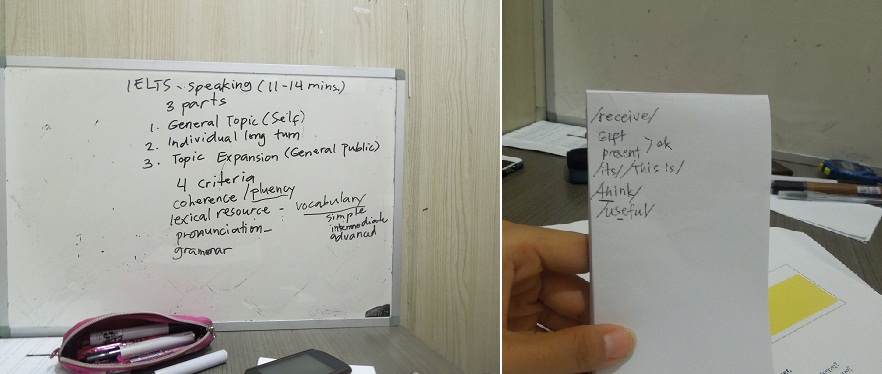 IELTS - speaking (11-14 mins.)
3 parts
1. General Topic (Self)
2. Individual long turn
3. Topic Expansion (General Public)
4 criteria
coherence / pluency
lexical resource - vocabulary
simple
intermediate
advanced
pronunciation -
grammar
/receive/
Gift
present > ok
/its/ /this is/
/think/
/useful/